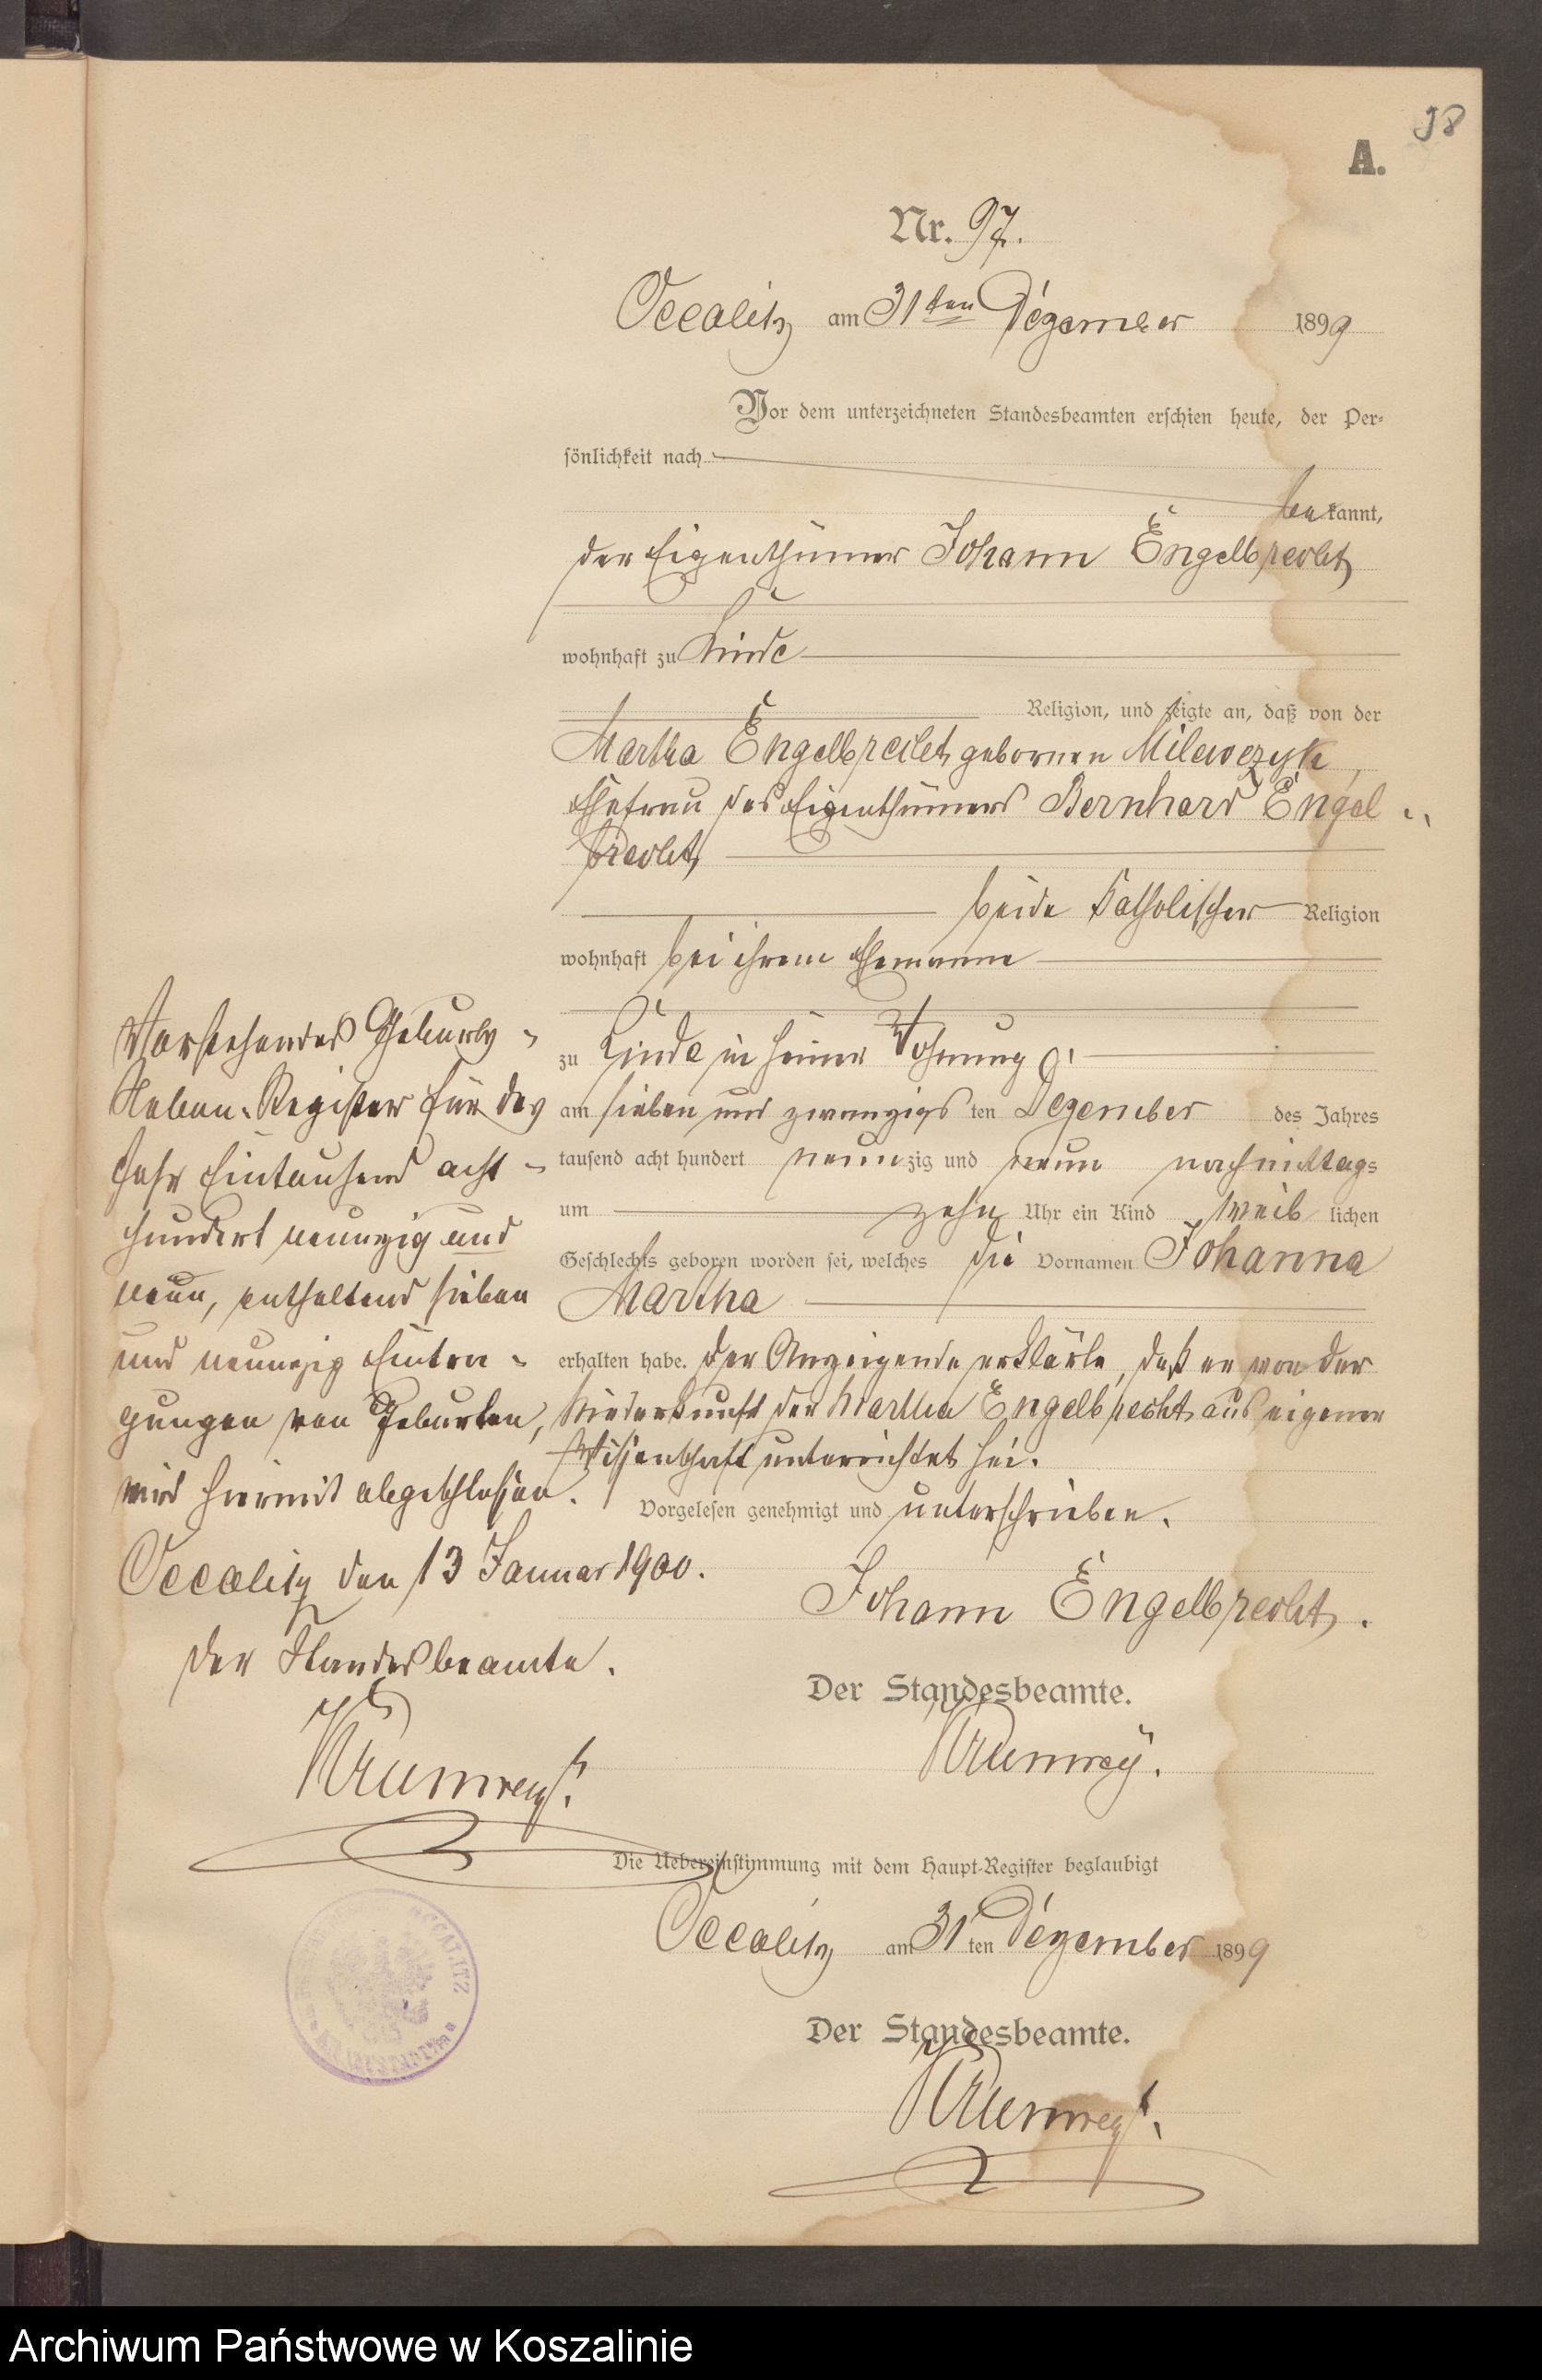 98
A.
Nr. 97.
Occalitz am 31ten Dezember 1899
Vor dem unterzeichneten Standesbeamten erschien heute, der Per-
sönlichkeit nach
bekannt,
der Eigenthümer Johann Engelbrecht
wohnhaft zu Linde
Religion, und zeigte an, daß von der
Martha Engelbrecht gebornen Milewczyk,
Ehefrau des Eigenthümers Bernhard Engel-
brecht,
beide Katholischer Religion
wohnhaft bei ihrem Ehemanne
zu Linde in seiner Wohnung
am sieben und zwanzigs ten Dezember des Jahres
tausend acht hundert neunzig und neun nachmittags
um zehn Uhr ein Kind weib lichen
Geschlechts geboren worden sei, welches die Vornamen Johanna
Martha
erhalten habe. Der Anzeigende erklärte, daß er von der
Niederkunft der Martha Engelbrecht aus eigener
Wissenschaft unterrichtet sei.
Vorgelesen genehmigt und unterschrieben.
Johann Engelbrecht.
Der Standesbeamte.
Krumrey.
Die Uebereinstimmung mit dem Haupt-Register beglaubigt
Occalitz am 31 ten Dezember 1899
Der Standesbeamte.
Krumrey.
Vorstehendes Geburts-
Neben-Register für das
Jahr Eintausend acht-
hundert neunzig und
neun, enthaltend sieben
und neunzig Eintra-
gungen von Geburten,
wird hiermit abgeschlossen.
Occalitz den 13 Januar 1900.
Der Standesbeamte.
Krumrey.
OCCALITZ
Archiwum Państwowe w Koszalinie